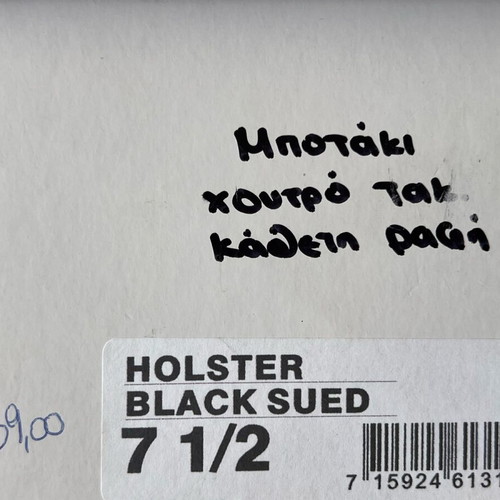 Μποτάκι
χουτρό τακ
κάθετη ραφή
HOLSTER
BLACK SUED
7 1/2
9,00
7 15924 6131